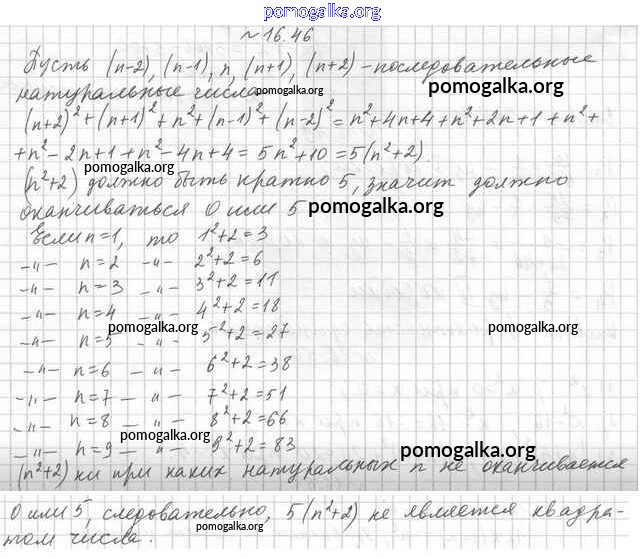 pomogalka.org
№ 16.46
Пусть (n-2), (n-1), n, (n+1), (n+2) - последовательные
pomogalka.org
натуральные числа.
pomogalka.org
(n+2)² + (n+1)² + n² + (n-1)² + (n-2)² = n² + 4n + 4 + n² + 2n + 1 + n² +
+ n² - 2n + 1 + n² - 4n + 4 = 5n² + 10 = 5(n² + 2)
pomogalka.org
(n²+2) должно быть кратно 5, значит должно
оканчиваться 0 или 5
pomogalka.org
Если n=1, то 1²+2=3
-"- n=2 -"- 2²+2=6
-"- n=3 -"- 3²+2=11
-"- n=4 -"- 4²+2=18
pomogalka.org
pomogalka.org
-"- n=5 -"- 5²+2=27
-"- n=6 -"- 6²+2=38
-"- n=7 -"- 7²+2=51
-"- n=8 -"- 8²+2=66
pomogalka.org
-"- n=9 -"- 9²+2=83
pomogalka.org
(n²+2) ни при каких натуральных n не оканчивается
0 или 5, следовательно, 5(n²+2) не является квадра-
pomogalka.org
том числа.